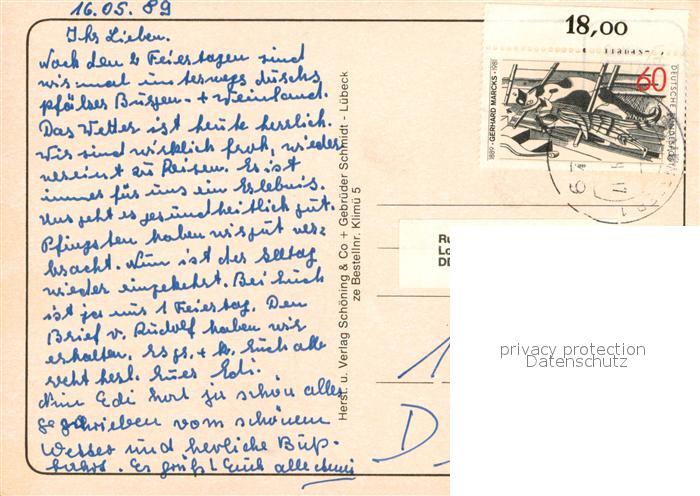 16.05.89
Ihr Lieben.
Nach den 2 Feiertagen sind
wir mal unterwegs durchs
pfälzer Burgen- + Weinland.
Das Wetter ist heute herrlich.
Wir sind wirklich froh, wieder
vereint zu Reisen. Es ist
immer für uns ein Erlebnis.
Uns geht es gesundheitlich gut.
Pfingsten haben wir gut ver-
bracht. Nun ist der Alltag
wieder eingekehrt. Bei Euch
ist ja nur 1 Feiertag. Den
Brief v. Rudolf haben wir
erhalten. Es gr. + k. Euch alle
recht herzl. Euer Edi.
Nun Edi hat ja schon alles
geschrieben vom schönem
Wetter und herrliche Bus-
fahrt. Es grüßt Euch alle
Herst. u. Verlag Schöning & Co + Gebrüder Schmidt - Lübeck
ze Bestellnr. Klimü 5
18,00
60
1889 - GERHARD MARCKS - 1981
DEUTSCHE BUNDESPOST
Ru
Lo
DD
1
D
privacy protection
Datenschutz